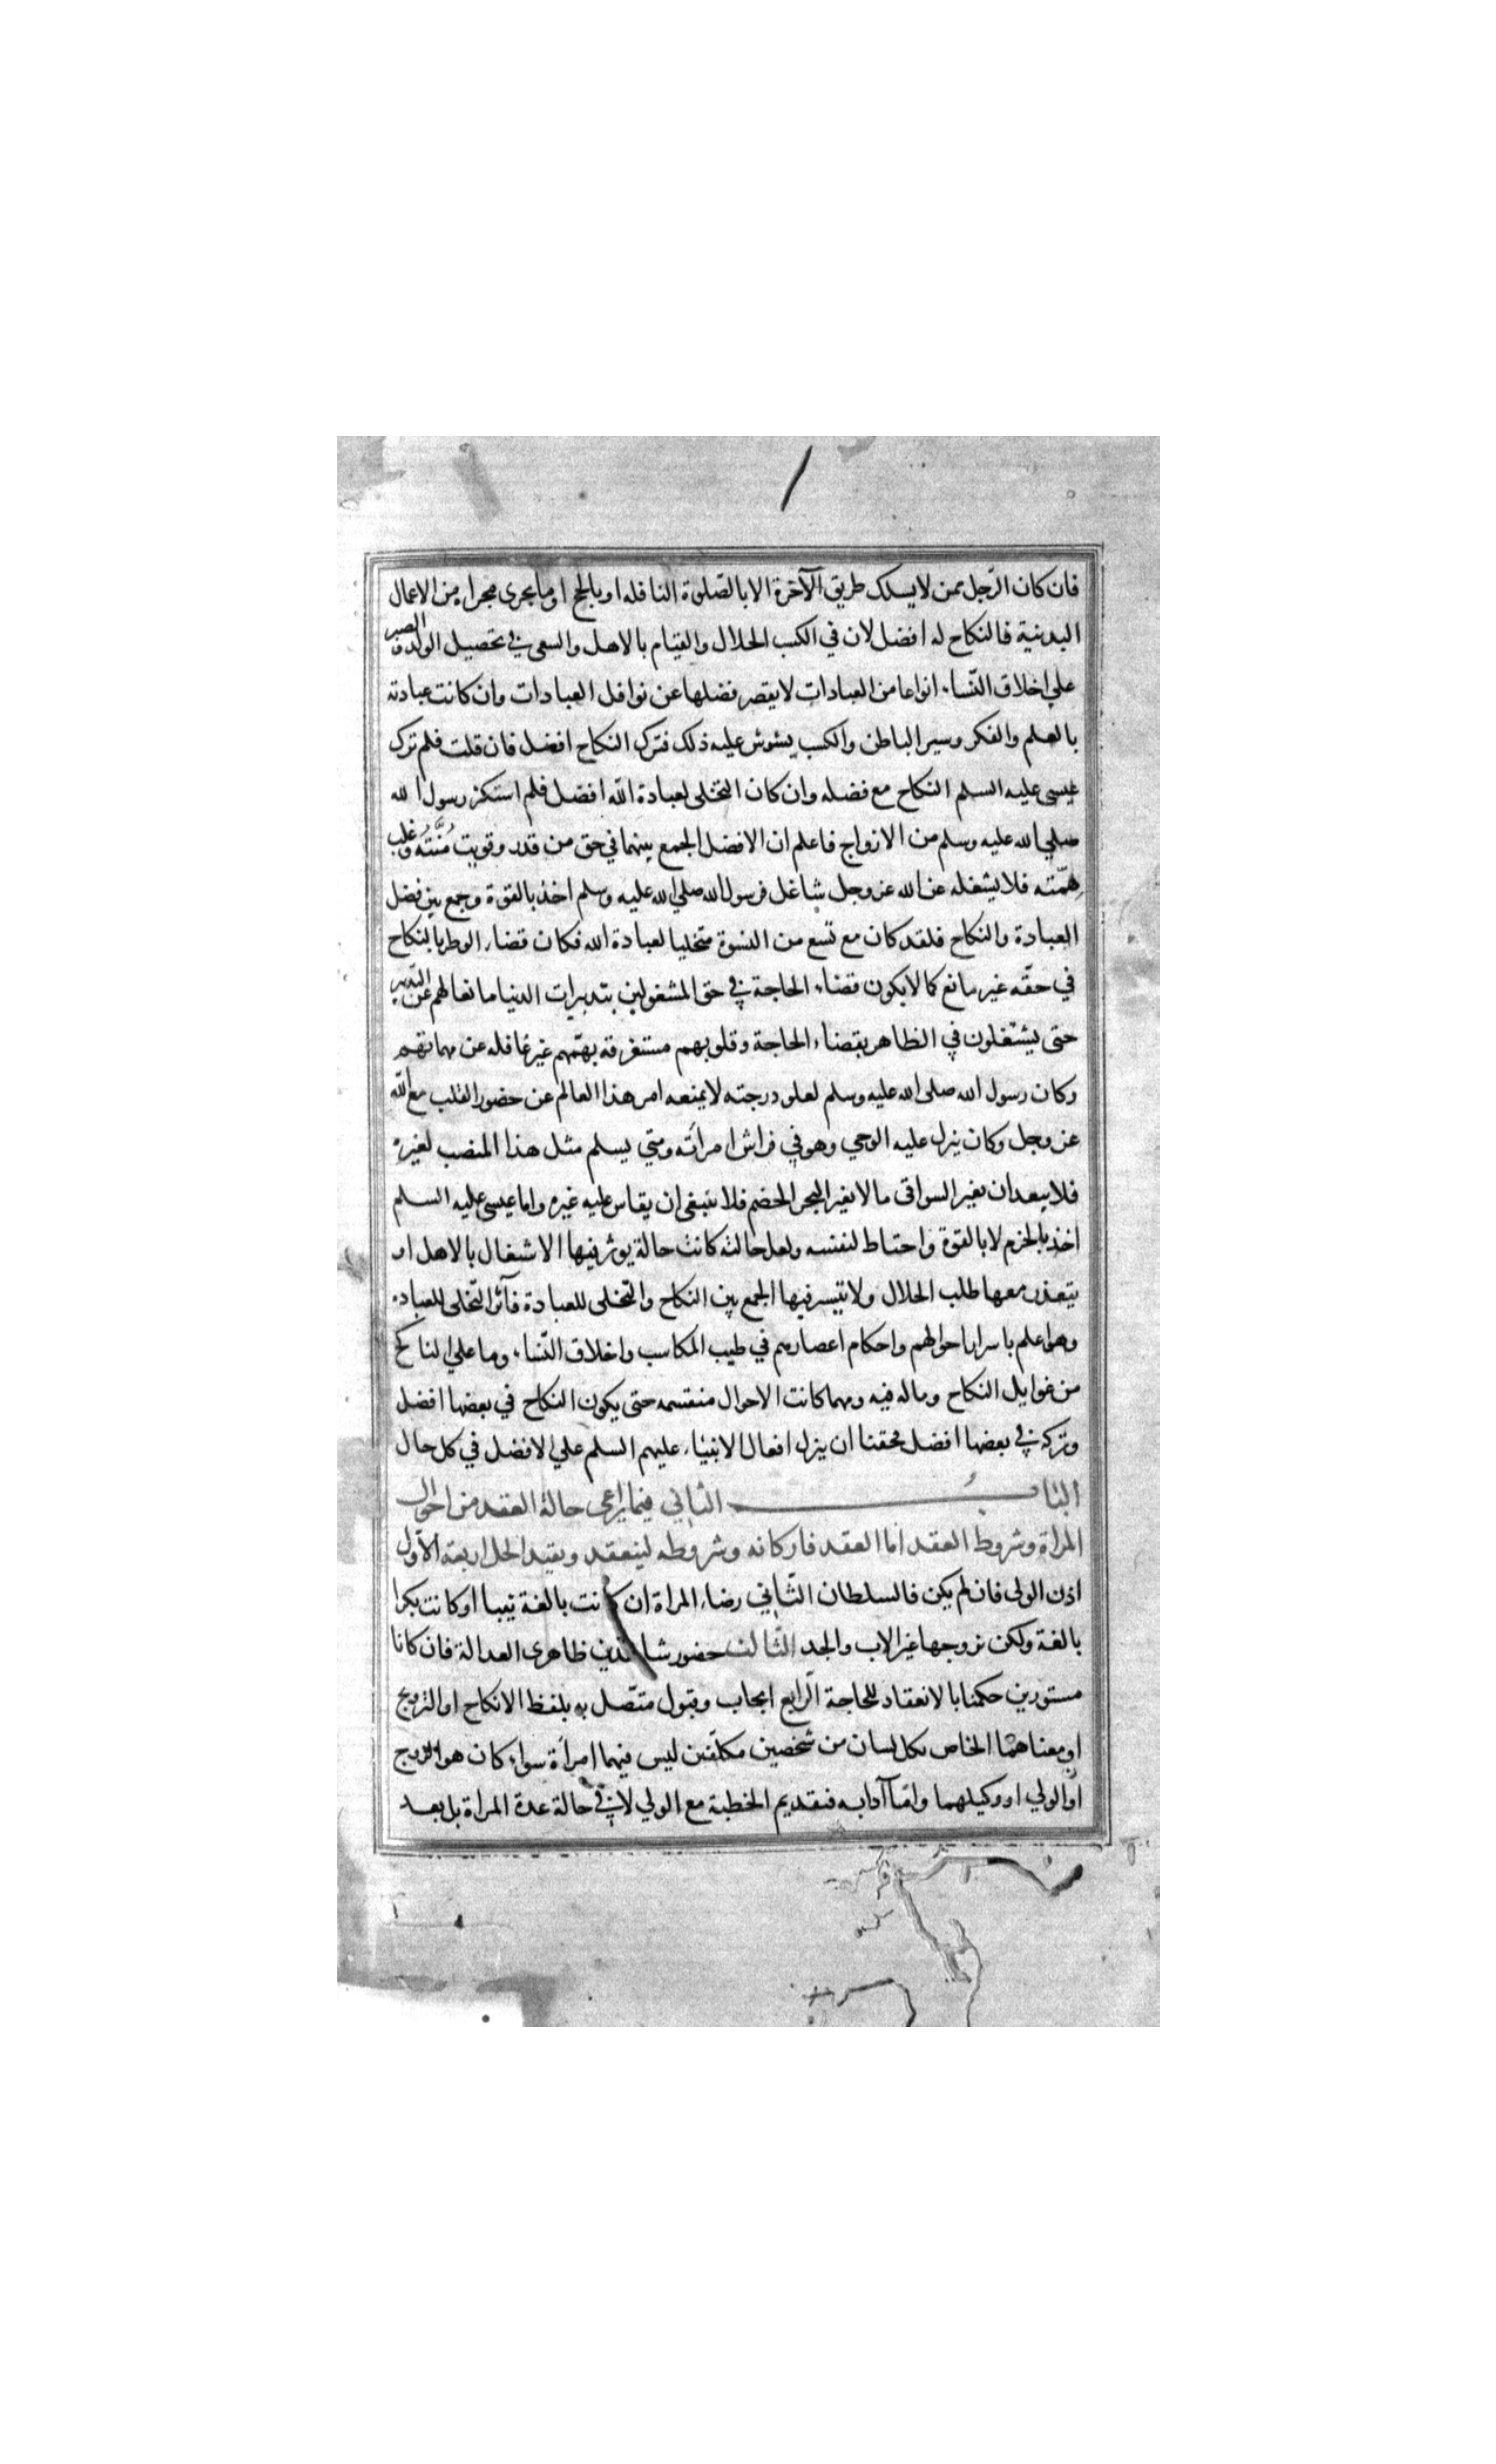 فان كان الرّجل ممن لا يسلك طريق الآخرة الا بالصّلوة النافله او بالحج او ما يجرى مجراه من الاعمال
البدنية فالنكاح له افضل لان في الكسب الحلال والقيام بالاهل والسعى في تحصيل الولد والصبر
علي اخلاق النّساء انواعا من العبادات لا يقصر فضلها عن نوافل العبادات وان كانت عبادته
بالعلم والفكر وسير الباطن والكسب يشوش عليه ذلك فترك النكاح افضل فان قلت فلم ترك
عيسى عليه السلم النكاح مع فضله وان كان التخلى لعبادة الله افضل فلم استكثر رسول الله
صلي الله عليه وسلم من الازواج فاعلم ان الافضل الجمع بينهما في حق من قدر وقويت مُنَّتُه وغلب
هِمّته فلا يشغله عن الله عز وجل شاغل فرسول الله صلي الله عليه وسلم اخذ بالقوة وجمع بين فضل
العبادة والنكاح فلقد كان مع تسع من النسوة متخليا لعبادة الله فكان قضاء الوطر بالنكاح
في حقّه غير مانع كما لا يكون قضاء الحاجة في حق المشغولين بتدبيرات الدنيا مانعا لهم عن التدبير
حتى يشتغلون في الظاهر بقضاء الحاجة وقلوبهم مستغرقه بهممهم غير غافله عن مهماتهم
وكان رسول الله صلى الله عليه وسلم لعلو درجته لا يمنعه امر هذا العالم عن حضور القلب مع الله
عز وجل وكان ينزل عليه الوحي وهو في فراش امرأته ومتي يسلم مثل هذا المنصب لغيره
فلا يبعد ان يغير السواقى ما لا يغير البحر الخضم فلا ينبغى ان يقاس عليه غيره واما عيسى عليه السلم
اخذ بالحزم لا بالقوة واحتاط لنفسه ولعل حالته كانت حالة يوثر فيها الاشتغال بالاهل او
يتعذر معها طلب الحلال ولا يتيسر فيها الجمع بين النكاح والتخلى للعبادة فآثر التخلى للعباده
وهو اعلم باسرار احوالهم واحكام اعصارهم في طيب المكاسب واخلاق النّساء وما علي الناكح
من غوايل النكاح وماله فيه ومهما كانت الاحوال منقسمه حتى يكون النكاح في بعضها افضل
وتركه في بعضها افضل فحقنا ان ينزل افعال الانبياء عليهم السلم علي الافضل في كل حال
الباب الثاني فيما يراعى حالة العقد من احوال
المراة وشروط العقد اما العقد فاركانه وشروطه لينعقد ويفيد الحل اربعة الاوّل
اذن الولى فان لم يكن فالسلطان الثّاني رضاء المراة ان كانت بالغة ثيبا او كانت بكرا
بالغة ولكن يزوجها غير الاب والجد الثالث حضور شاهدين ظاهرى العدالة فان كانا
مستورين حكمنا بالانعقاد للحاجة الرابع ايجاب وقبول متّصل به بلفظ الانكاح او التزويج
او معناهما الخاص بكل لسان من شخصين مكلفين ليس فيهما امرأة سواء كان هو الزوج
او الولي او وكيلهما واما آدابه فتقديم الخطبة مع الولي لا في حالة عدة المراة بل بعد